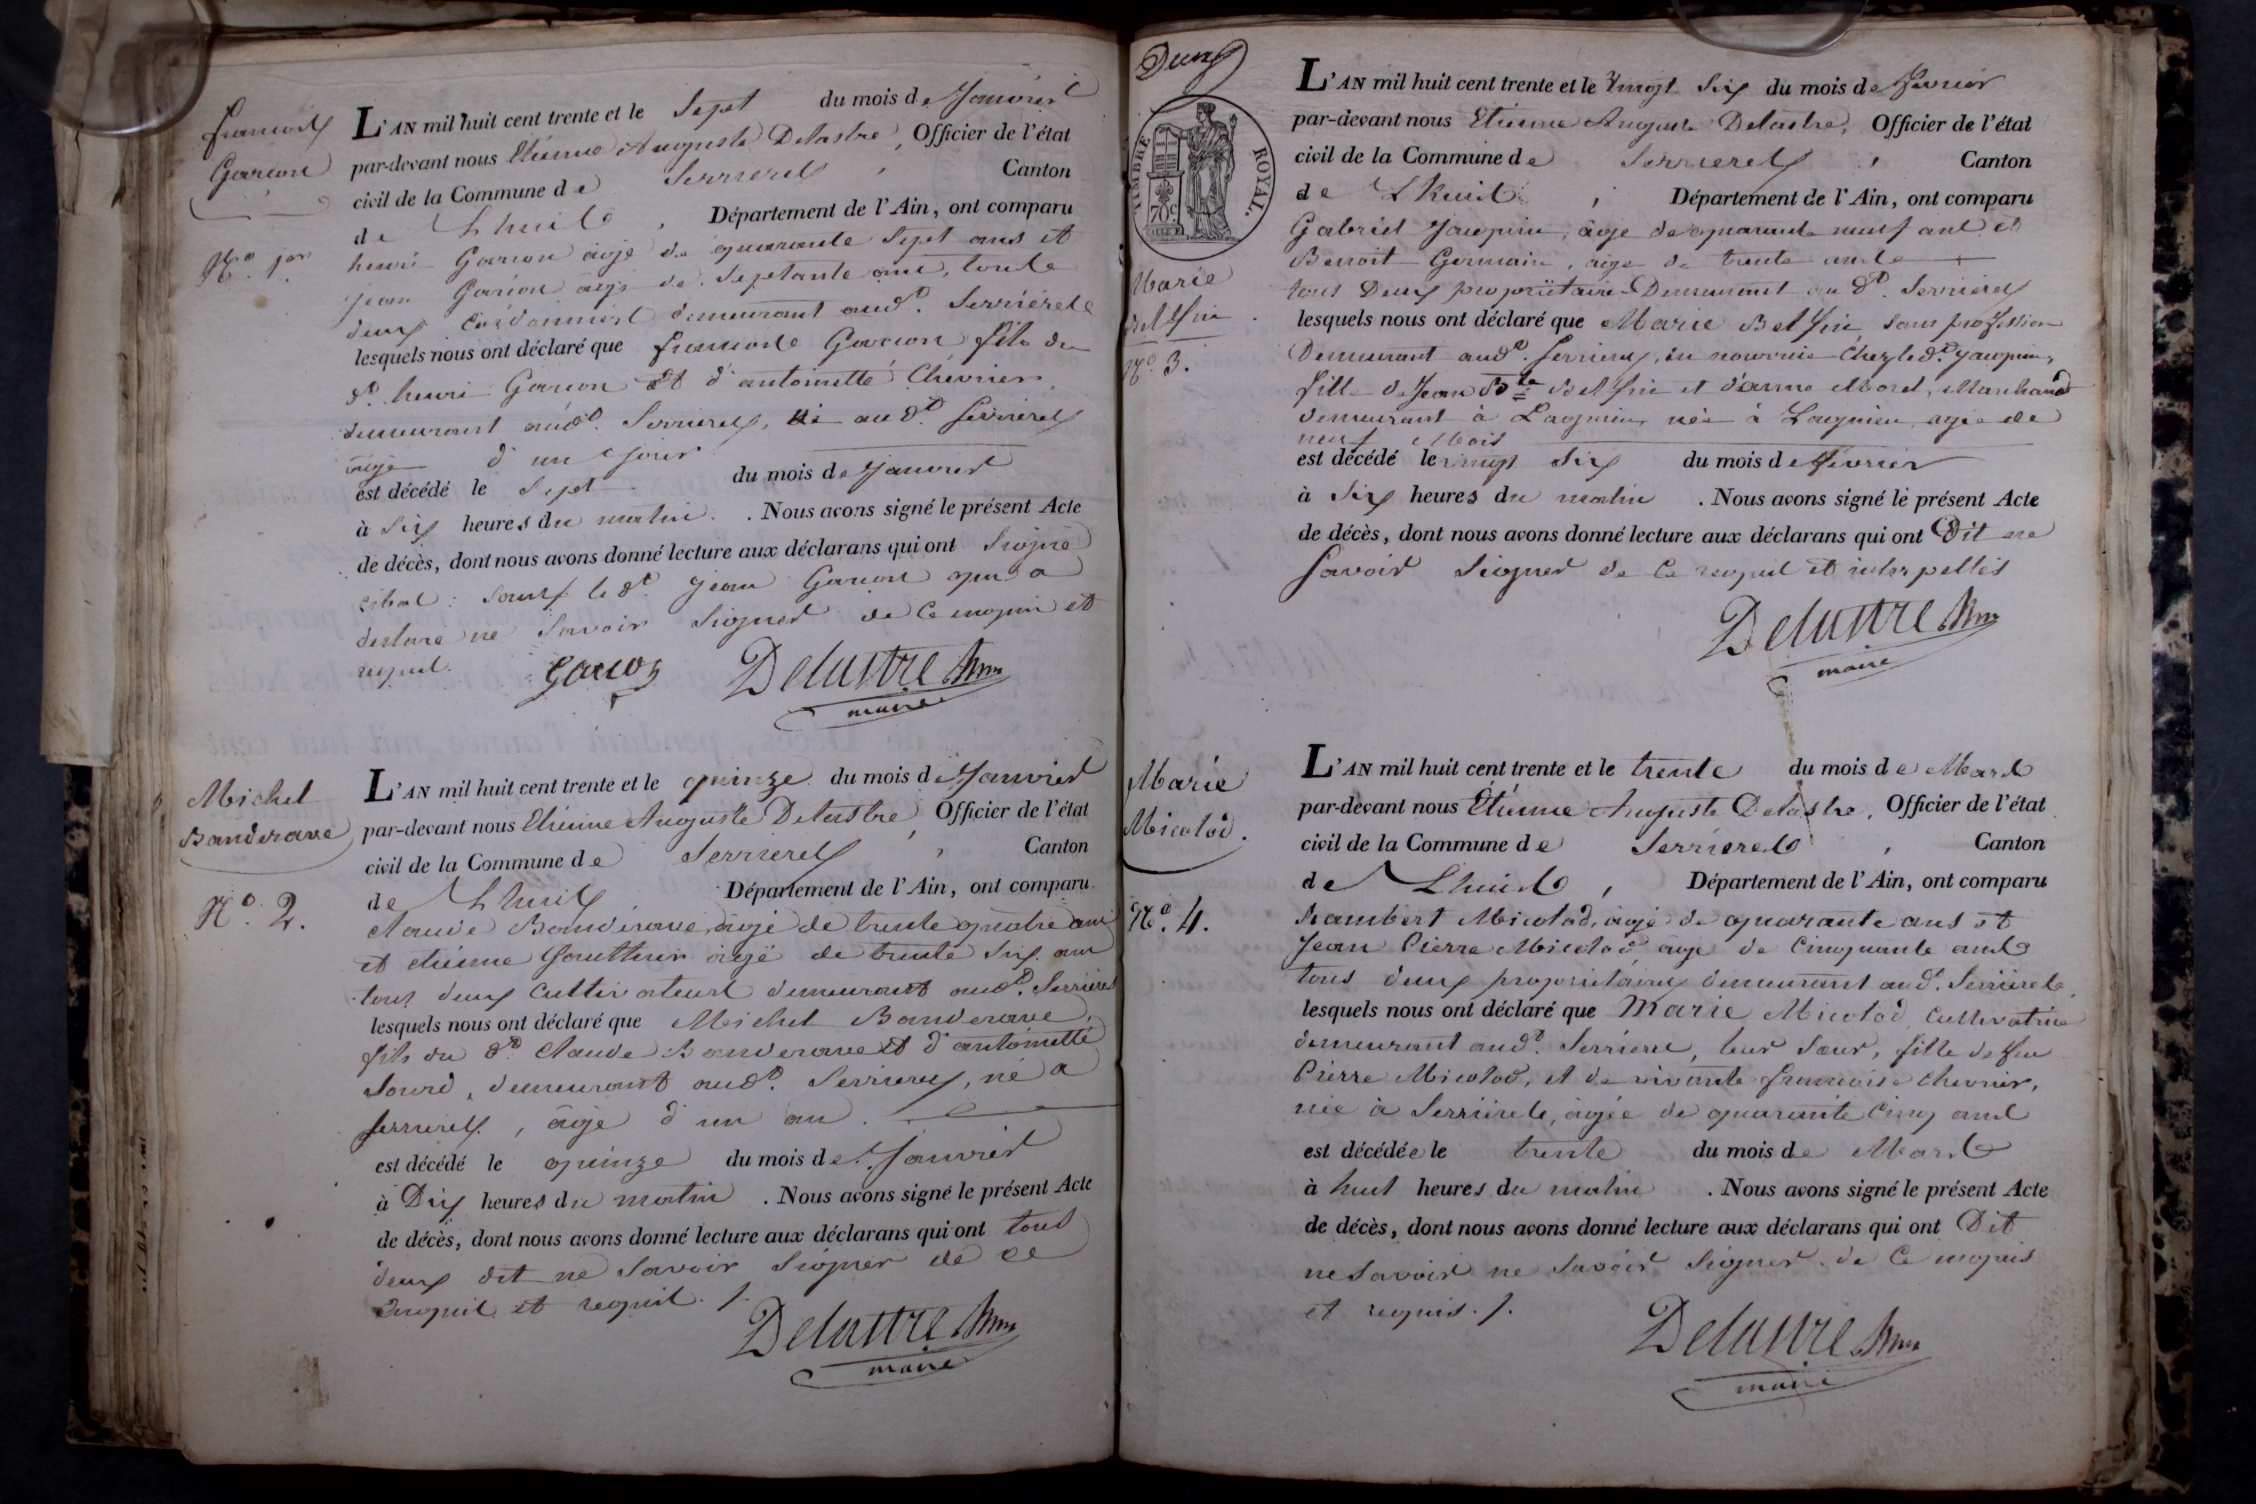 françois
Garion
N.o 1er
L'AN mil huit cent trente et le Sept du mois de Janvier
par-devant nous Etienne Auguste Delastre, Officier de l'état
civil de la Commune de Serrieres, Canton
de Lhuis, Département de l'Ain, ont comparu
henri Garion âgé de quarante Sept ans et
jean Garion âgé de Septante ans, tout
deux Cordonniers demeurant aud.t Serrieres
lesquels nous ont déclaré que françois Garion fils du
d.t henri Garion et d'antoinette Chevrier,
demeurant aud.t Serrieres, né au d.t Serrieres
âgé d'un jour
est décédé le Sept du mois de Janvier
à Six heures du matin. Nous avons signé le présent Acte
de décès, dont nous avons donné lecture aux déclarans qui ont Signé
Sauf le d.t jean Garion qui a
declaré ne Savoir Signer de Ce enquis et
requis.
Garion Delastre
maire
Michel
Banderave
N.o 2.
L'AN mil huit cent trente et le quinze du mois de Janvier
par-devant nous Etienne Auguste Delastre, Officier de l'état
civil de la Commune de Serrieres, Canton
de Lhuis Département de l'Ain, ont comparu
Claude Banderave, âgé de trente quatre ans
et etienne âgé de trente Six ans
tous deux Cultivateurs demeurant aud.t Serrieres
lesquels nous ont déclaré que Michel Banderave,
fils du d.t Claude Banderave et d'antoinette
demeurant aud.t Serrieres, né a
Serrieres, âgé d'un an.
est décédé le quinze du mois de Janvier
à Dix heures du matin. Nous avons signé le présent Acte
de décès, dont nous avons donné lecture aux déclarans qui ont tous
deux dit ne Savoir Signer de ce
Enquis et requis.
Delastre
maire
Deux
TIMBRE ROYAL.
70c
Marie
Belfin
N.o 3.
L'AN mil huit cent trente et le Vingt Six du mois de fevrier
par-devant nous Etienne Auguste Delastre, Officier de l'état
civil de la Commune de Serrieres, Canton
de Lhuis, Département de l'Ain, ont comparu
Gabriel âgé de quarante neuf ans et
Benoit Germain, âgé de trente ans
tous Deux propriétaires Demeurant au d.t Serrieres
lesquels nous ont déclaré que Marie Belfin Sans profession
Demeurant aud.t Serrieres, en nourrice Chez le d.t
fille de Jean Bte Belfin et d'anne Morel, Marchand
demeurant à Lagnieu, née à Lagnieu agée de
neuf Mois
est décédé le vingt Six du mois de fevrier
à Six heures du matin. Nous avons signé le présent Acte
de décès, dont nous avons donné lecture aux déclarans qui ont Dit ne
Savoir Signer de Ce requis et interpellés
Delastre
maire
Marie
Micolod.
N.o 4.
L'AN mil huit cent trente et le trente du mois de Mars
par-devant nous Etienne Auguste Delastre, Officier de l'état
civil de la Commune de Serrieres, Canton
de Lhuis, Département de l'Ain, ont comparu
Rambert Micolod, âgé de quarante ans et
Jean Pierre Micolod âgé de Cinquante ans
tous deux propriétaires demeurant aud.t Serrieres,
lesquels nous ont déclaré que Marie Micolod, Cultivatrice
demeurant aud.t Serrieres, leur Sœur, fille de feu
Pierre Micolod, et de vivante françoise Chevrier,
née à Serrieres, âgée de quarante Cinq ans
est décédée le trente du mois de Mars
à huit heures du matin. Nous avons signé le présent Acte
de décès, dont nous avons donné lecture aux déclarans qui ont Dit
ne Savoir ne Savoir Signer de Ce enquis
et requis.
Delastre
maire